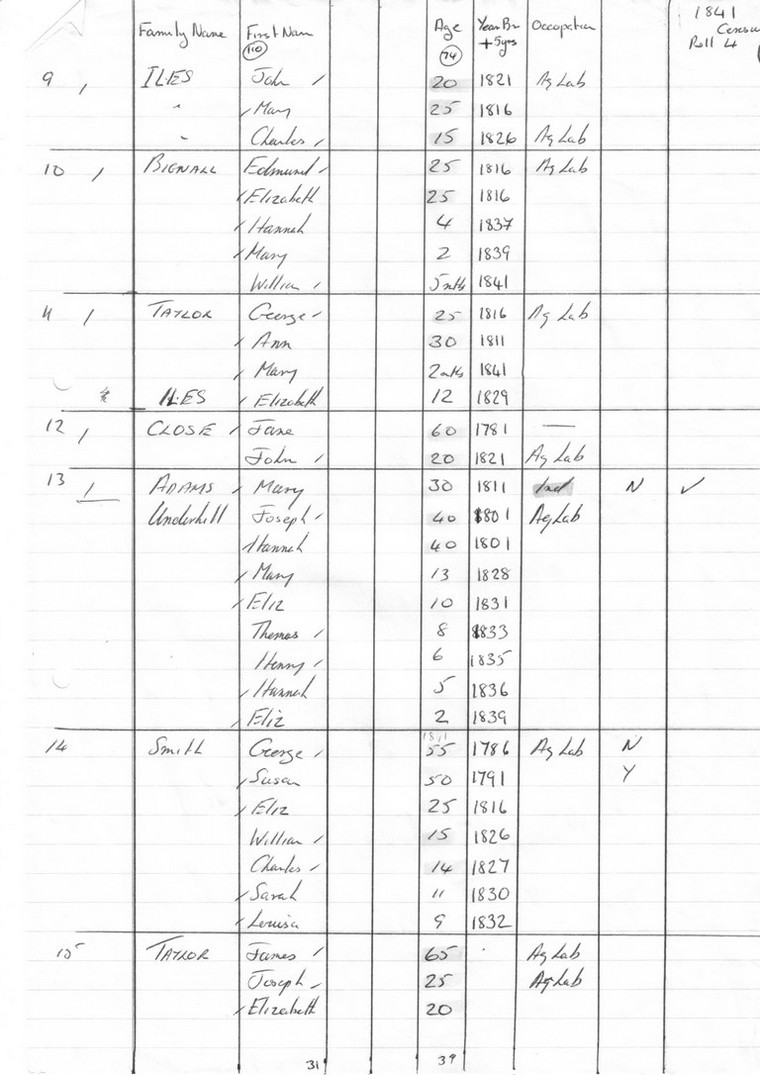 1841
Family Name First Nam Age Year Bn Occupation Census
110 74 +5yrs Roll 4
9 / ILES John / 20 1821 Ag Lab
" / Mary 25 1816
" Charles / 15 1826 Ag Lab
10 / BIGNALL Edmund / 25 1816 Ag Lab
/ Elizabeth 25 1816
/ Hannah 4 1837
/ Mary 2 1839
William / 5mths 1841
11 / TAYLOR George / 25 1816 Ag Lab
/ Ann 30 1811
/ Mary 2mths 1841
* ILES / Elizabeth 12 1829
12 / CLOSE / Jane 60 1781 —
John / 20 1821 Ag Lab
13 / ADAMS / Mary 30 1811 Ind N ✓
Underhill Joseph / 40 1801 Ag Lab
/ Hannah 40 1801
/ Mary 13 1828
/ Eliz 10 1831
Thomas / 8 1833
Henry / 6 1835
/ Hannah 5 1836
/ Eliz 2 1839
14 Smith George / 55 1786 Ag Lab N
/ Susan 50 1791 Y
/ Eliz 25 1816
William / 15 1826
Charles / 14 1827
/ Sarah 11 1830
/ Louisa 9 1832
15 TAYLOR James / 65 Ag Lab
Joseph / 25 Ag Lab
/ Elizabeth 20
31 39